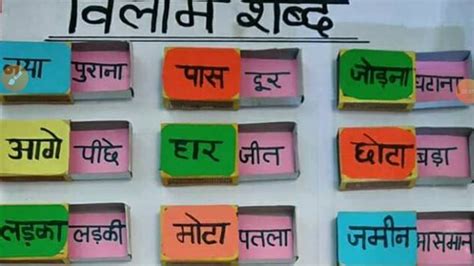 विलोम शब्द
नया पुराना पास दूर जोड़ना घटाना
आगे पीछे हार जीत छोटा बड़ा
लड़का लड़की मोटा पतला जमीन आसमान